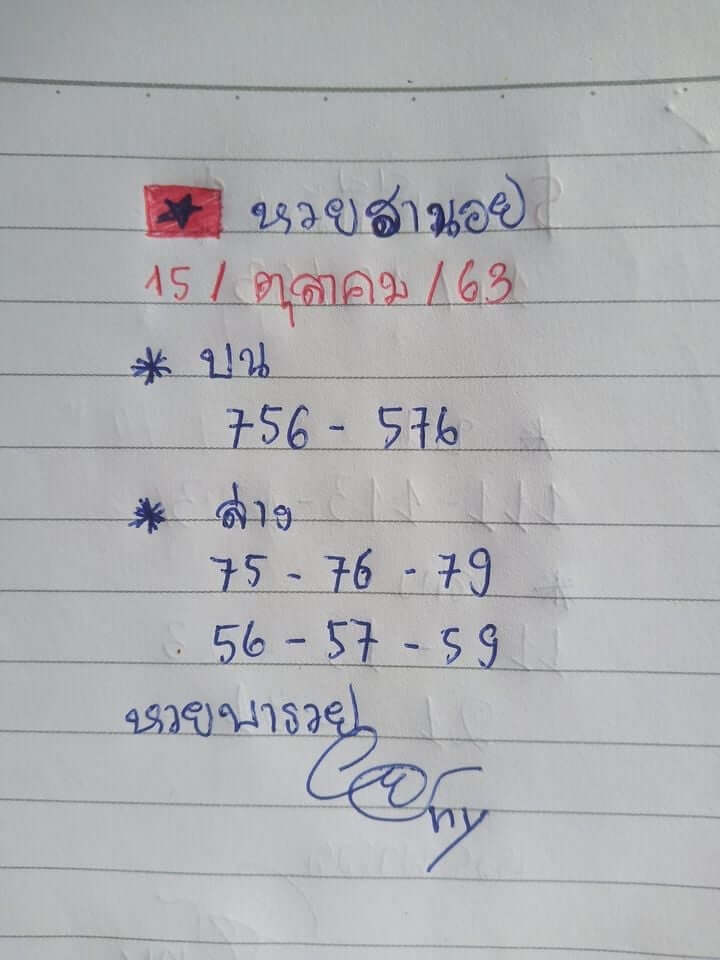 หวยฮานอย
15 / ตุลาคม / 63
* บน
756 - 576
* ล่าง
75 - 76 - 79
56 - 57 - 59
หวยพารวย